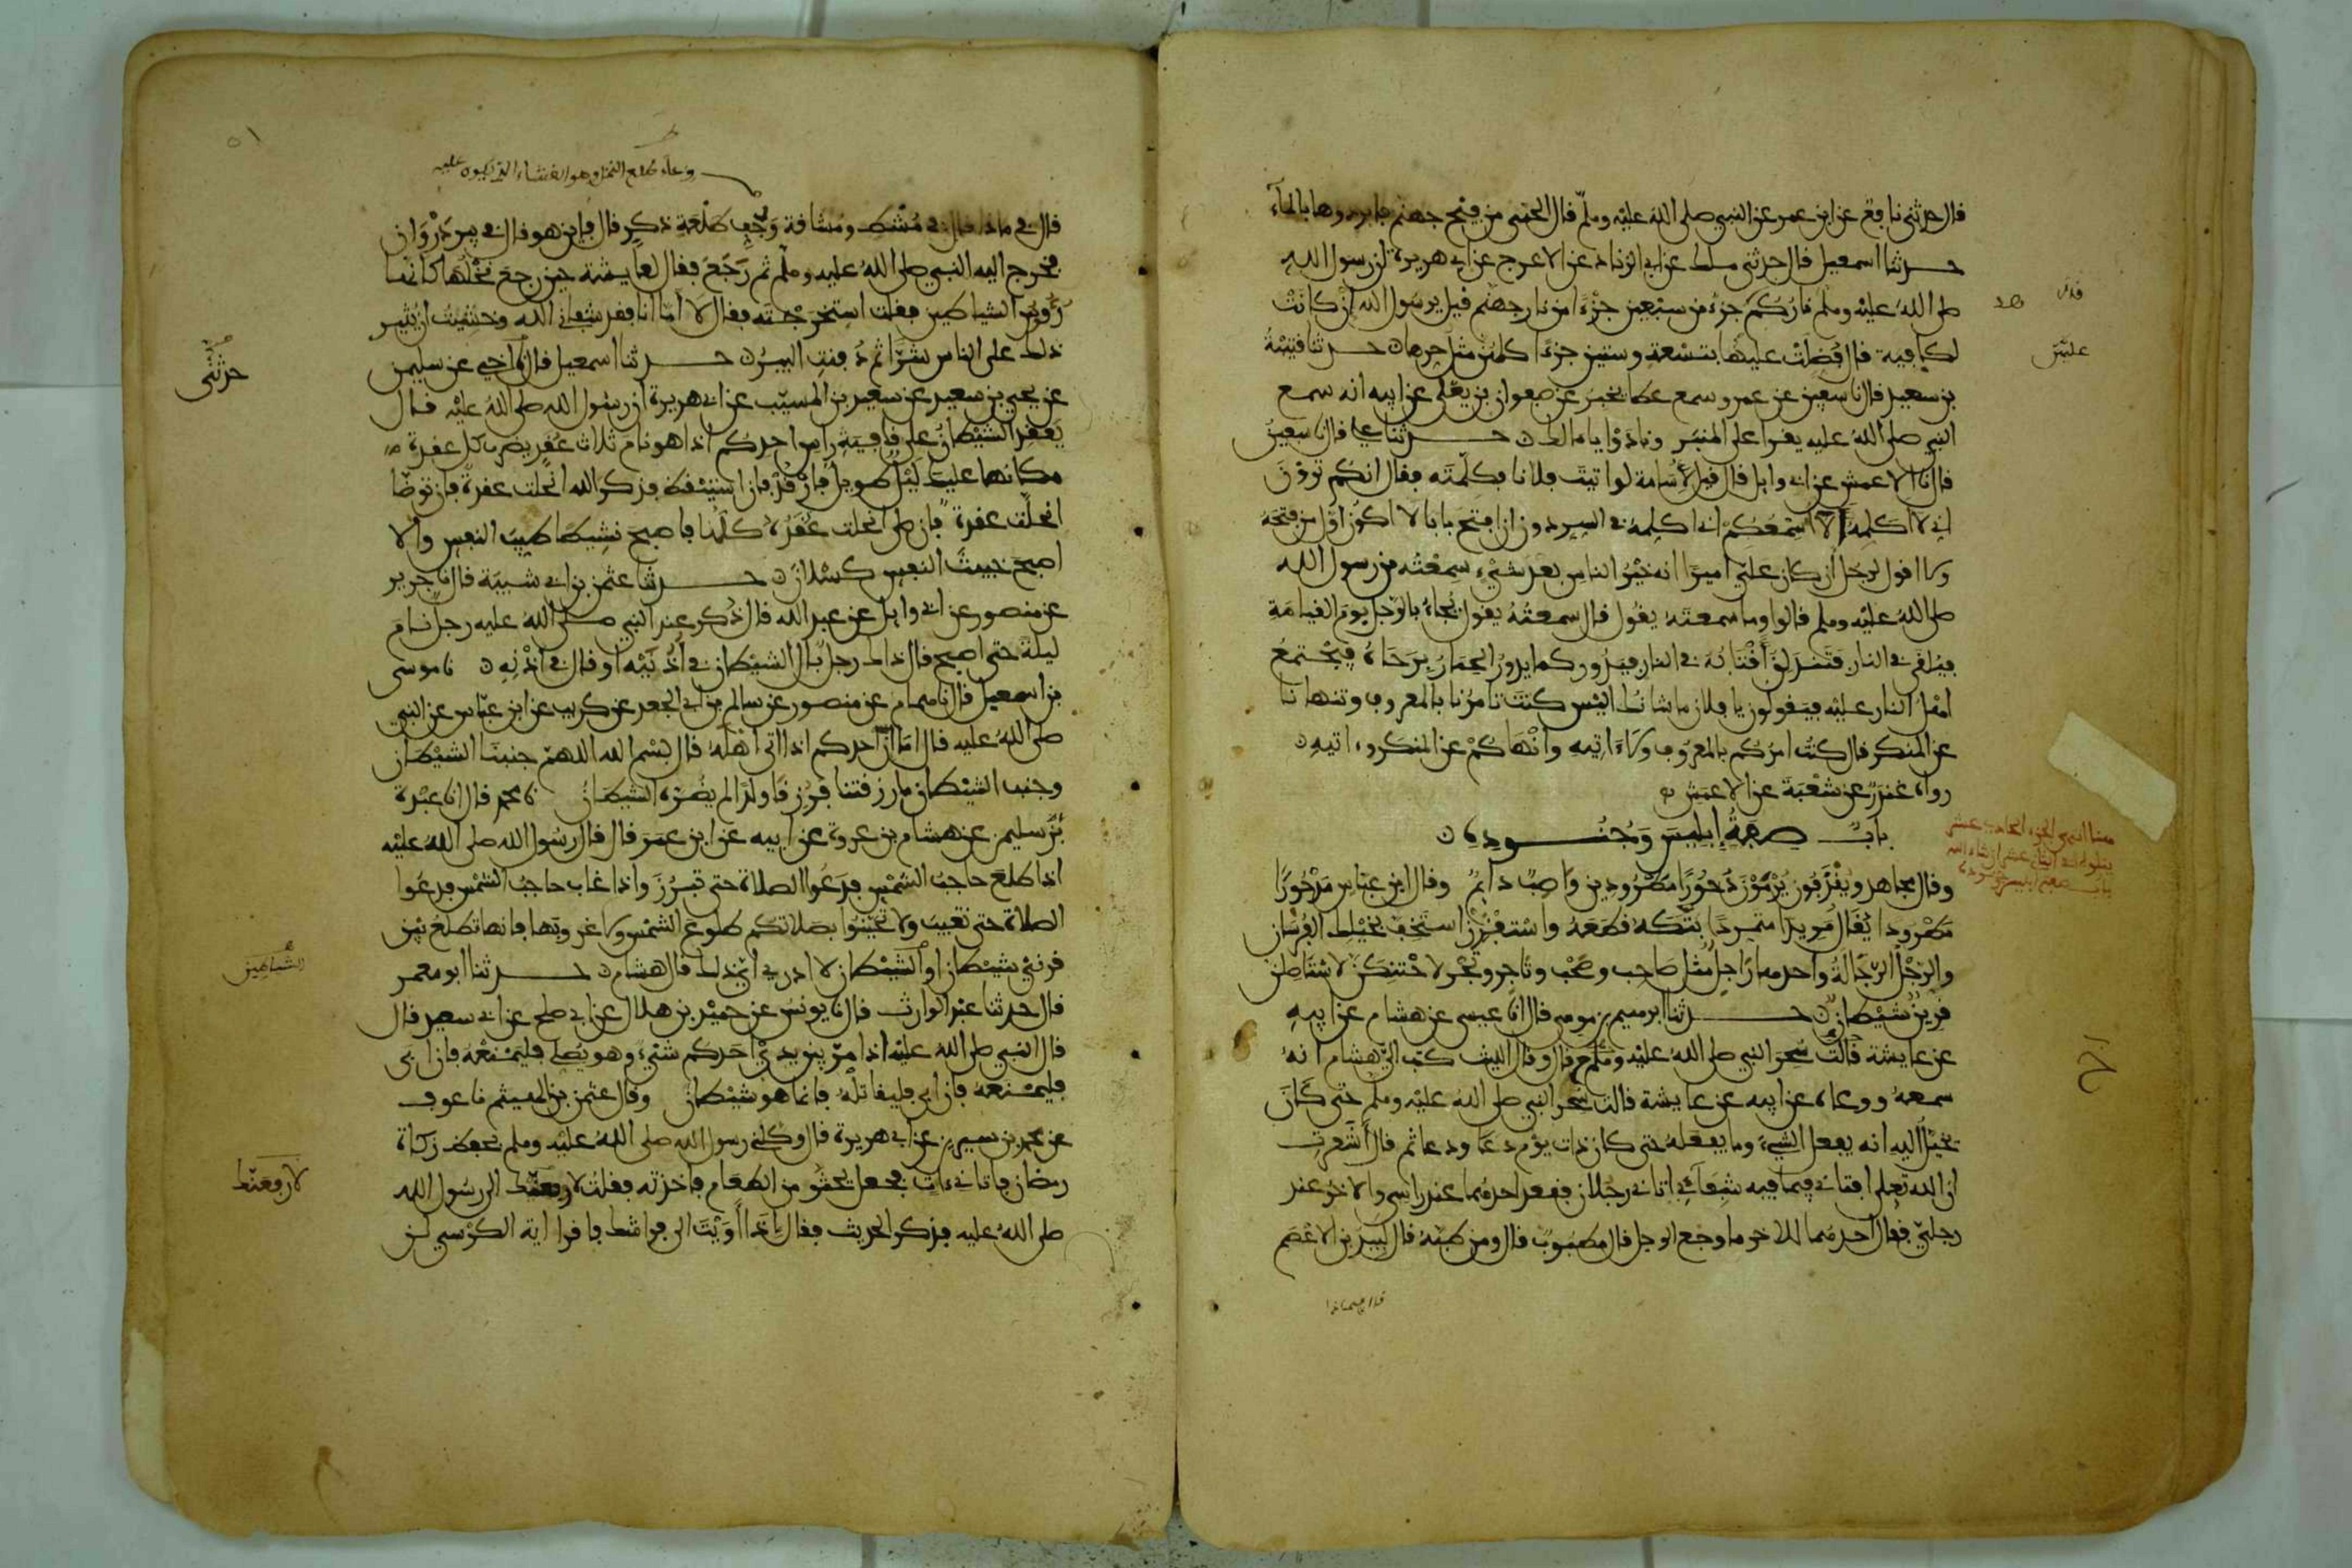 قال حدثني نافع عن ابن عمر عن النبي صلى الله عليه وسلم قال الحمى من فيح جهنم فابردوها بالماء
حدثنا اسمعيل قال حدثني ملك عن ابي الزناد عن الاعرج عن ابي هريرة ان رسول الله
صلى الله عليه وسلم قال ناركم جزء من سبعين جزءا من نار جهنم قيل يرسول الله ان كانت
لكافية قال فضلت عليها بتسعة وستين جزءا كلهن مثل حرها حدثنا قتيبة
بن سعيد قال نا سفين عن عمرو سمع عطا يخبر عن صفوان بن يعلى عن ابيه انه سمع
النبي صلى الله عليه يقرا على المنبر ونادوا يا ملك حدثنا علي قال نا سفين
قال نا الاعمش عن ابي وايل قال قيل لأسامة لو اتيت فلانا فكلمته فقال انكم ترون
اني لا اكلمه الا اسمعكم اني اكلمه في السر دون ان افتح بابا لا اكون اول من فتحه
ولا اقول لرجل ان كان علي اميرا انه خير الناس بعد شيء سمعته من رسول الله
صلى الله عليه وسلم قالوا وما سمعته يقول قال سمعته يقول يجاء بالرجل يوم القيامة
فيلقى في النار فتندلق أقتابه في النار فيدور كما يدور الحمار برحاه فيجتمع
اهل النار عليه فيقولون يا فلان ما شانك اليس كنت تامرنا بالمعروف وتنهانا
عن المنكر قال كنت امركم بالمعروف ولا اتيه وانهاكم عن المنكر واتيه
رواه غندر عن شعبة عن الاعمش
باب صفة إبليس وجنوده
وقال مجاهد ويقذفون يرمون دحورا مطرودين واصب دايم وقال ابن عباس مدحورا
مطرودا يقال مريدا متمردا بتكه قطعه واستفزز استخف بخيلك الفرسان
والرجل الرجالة واحدها راجل مثل صاحب وصحب وتاجر وتجر لاحتنكن لاستاصلن
قرين شيطان حدثنا ابرهيم بن موسى قال انا عيسى عن هشام عن ابيه
عن عايشة قالت سحر النبي صلى الله عليه وسلم ح قال وقال الليث كتب الي هشام انه
سمعه ووعاه عن ابيه عن عايشة قالت سحر النبي صلى الله عليه وسلم حتى كان
يخيل اليه انه يفعل الشيء وما يفعله حتى كان ذات يوم دعا ودعا ثم قال أشعرت
ان الله تعلى افتاني فيما فيه شفآئي اتاني رجلان فقعد احدهما عند راسي والاخر عند
رجلي فقال احدهما للاخر ما وجع الرجل قال مطبوب قال ومن طبه قال لبيد بن الاعصم
علي
هنا انتهى الجزء الحادي عشر
يتلوه في الثاني عشر ان شاء الله
باب صفة ابليس وجنوده
وعاء طلع النخل وهو الغشاء الذي يكون عليه
قال في ماذا قال في مشط ومشاقة وجف طلعة ذكر قال فاين هو قال في بير ذروان
فخرج اليه النبي صلى الله عليه وسلم ثم رجع فقال لعايشة حين رجع نخلها كانها
رؤوس الشياطين فقلت استخرجته فقال لا اما انا فقد شفاني الله وخشيت ان يثير
ذلك على الناس شرا ثم دفنت البير حدثنا اسمعيل قال نا اخي عن سليمن
عن يحيى بن سعيد عن سعيد بن المسيب عن ابي هريرة ان رسول الله صلى الله عليه قال
يعقد الشيطان على قافية راس احدكم اذا هو نام ثلاث عقد يضرب كل عقدة
مكانها عليك ليل طويل فارقد فان استيقظ فذكر الله انحلت عقدة فان توضا
انحلت عقدة فان صلى انحلت عقده كلها فاصبح نشيطا طيب النفس والا
اصبح خبيث النفس كسلان حدثنا عثمن بن ابي شيبة قال نا جرير
عن منصور عن ابي وايل عن عبد الله قال ذكر عند النبي صلى الله عليه رجل نام
ليلة حتى اصبح قال ذاك رجل بال الشيطان في أذنيه او قال في اذنه نا موسى
بن اسمعيل قال نا همام عن منصور عن سالم بن ابي الجعد عن كريب عن ابن عباس عن النبي
صلى الله عليه قال اما ان احدكم اذا اتى اهله قال بسم الله اللهم جنبنا الشيطان
وجنب الشيطان ما رزقتنا فرزقا ولدا لم يضره الشيطان نا محمد قال انا عبدة
بن سليمن عن هشام بن عروة عن ابيه عن ابن عمر قال قال رسول الله صلى الله عليه
اذا طلع حاجب الشمس فدعوا الصلاة حتى تبرز واذا غاب حاجب الشمس فدعوا
الصلاة حتى تغيب ولا تحينوا بصلاتكم طلوع الشمس ولا غروبها فانها تطلع بين
قرني شيطان او الشيطان لا ادري اي ذلك قال هشام حدثنا ابو معمر
قال حدثنا عبد الوارث قال نا يونس عن حميد بن هلال عن ابي صلح عن ابي سعيد قال
قال النبي صلى الله عليه اذا مر بين يدي احدكم شيء وهو يصلي فليمنعه فان ابى
فليمنعه فان ابى فليقاتله فانما هو شيطان وقال عثمن بن الهيثم نا عوف
عن محمد بن سيرين عن ابي هريرة قال وكلني رسول الله صلى الله عليه وسلم بحفظ زكاة
رمضان فاتاني ءات فجعل يحثو من الطعام فاخذته فقلت لارفعنك الى رسول الله
صلى الله عليه فذكر الحديث فقال اذا أويت الى فراشك فاقرا اية الكرسي لن
حدثني
الشياطين
لارفعنك